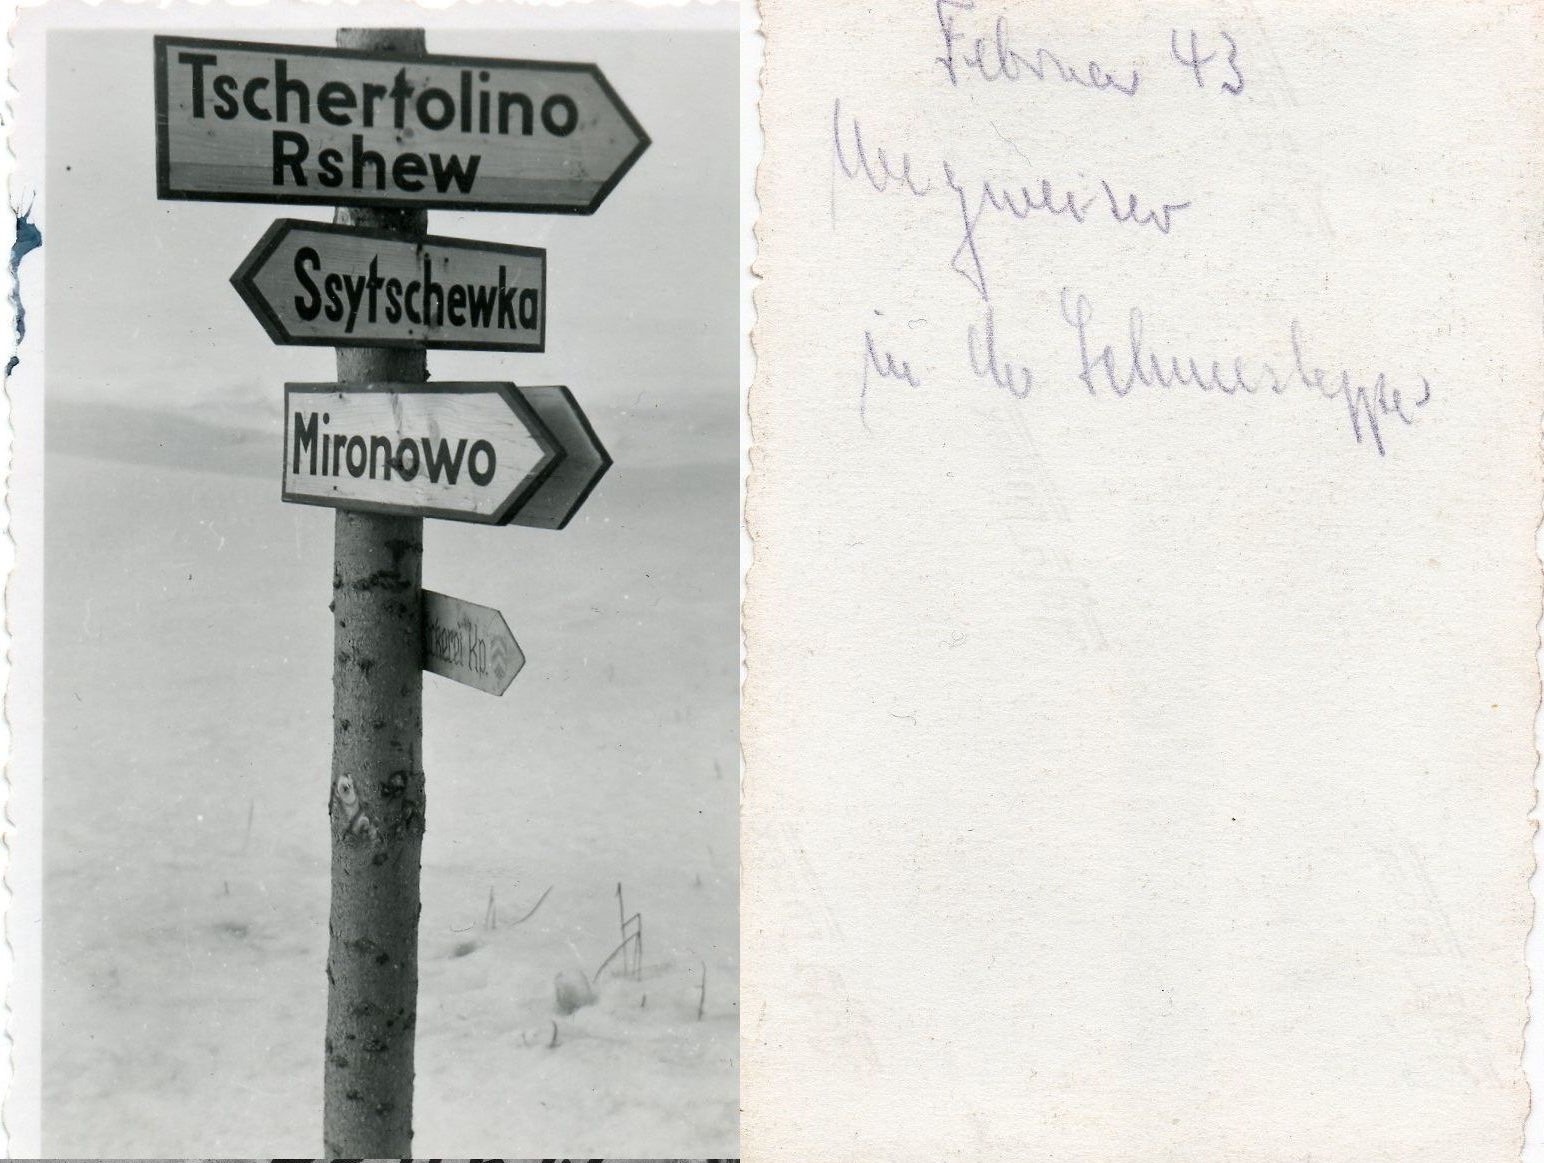 Tschertolino
Rshew
Ssytschewka
Mironowo
ckerei Kp.
Februar 43
Wegweiser
in der Schneesteppe